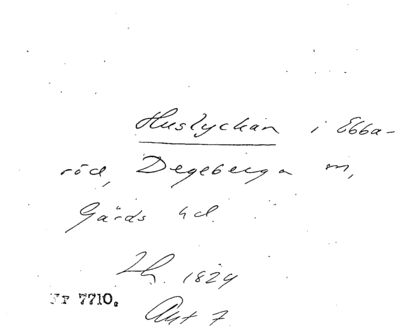 Huslyckan i Ebba-
röd, Degeberga m,
Gärds hd.
Lh. 1824
Nr 7710.
Akt 7